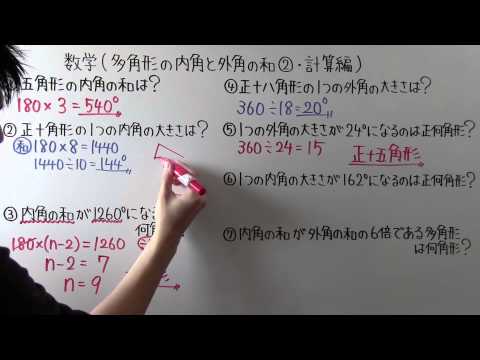 数学(多角形の内角と外角の和②・計算編)
五角形の内角の和は?
180×3=540°
② 正十角形の1つの内角の大きさは?
和 180×8=1440
1440÷10=144°
③ 内角の和が1260°になる
何角形?
180×(n-2)=1260
n-2=7
n=9
④ 正十八角形の1つの外角の大きさは?
360÷18=20°
⑤ 1つの外角の大きさが24°になるのは正何角形?
360÷24=15
正十五角形
⑥ 1つの内角の大きさが162°になるのは正何角形?
⑦ 内角の和が外角の和の6倍である多角形
は何角形?